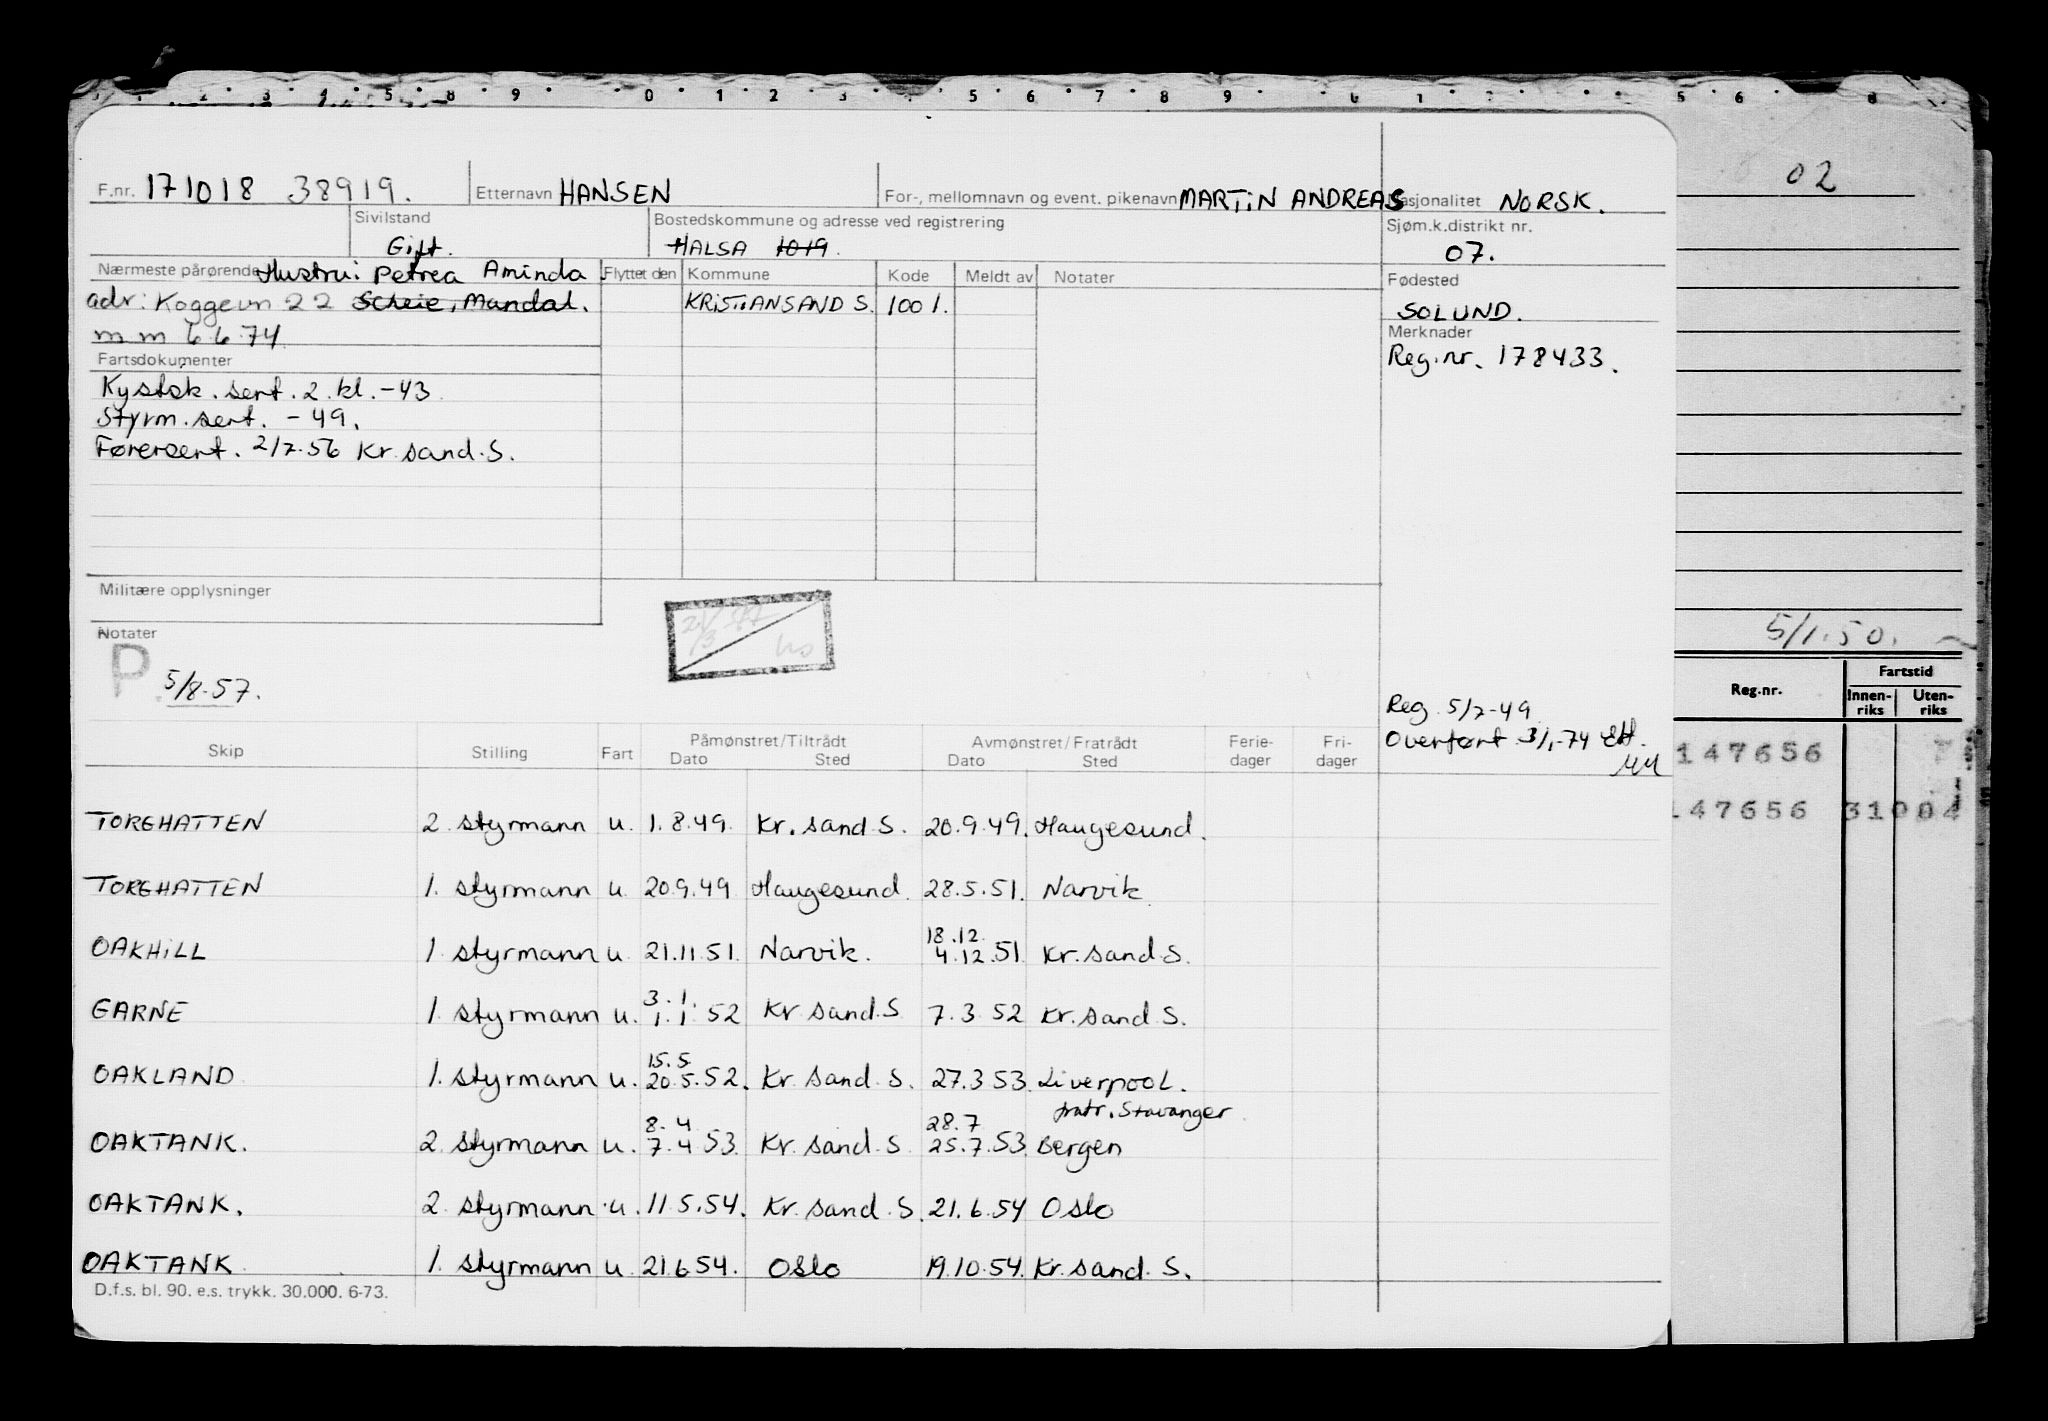 F.nr. 171018 38919. Etternavn HANSEN For-, mellomnavn og event. pikenavn MARTIN ANDREAS Nasjonalitet NORSK.
02
Sivilstand Gift. Bostedskommune og adresse ved registrering HALSA 1019 Sjøm.k.distrikt nr. 07.
Nærmeste pårørende Hustru: Petrea Aminda
adr: Koggevn 22 Scheie, Mandal.
m m 6.6.74
Flyttet den Kommune Kode Meldt av Notater
KRISTIANSAND S. 1001.
Fødested
SOLUND.
Merknader
Reg.nr. 178433.
Fartsdokumenter
Kystsk. sert. 2. kl. -43
Styrm. sert. -49.
Førersert. 2/7.56 Kr.sand.S.
Militære opplysninger
Notater
P. 5/8.57.
Reg. 5/7-49
Overført 3/1-74 EH.
5/1.50.
Reg.nr. Fartstid
Innen-riks Uten-riks
147656
147656 31004
Skip Stilling Fart Påmønstret/Tiltrådt Dato Sted Avmønstret/Fratrådt Dato Sted Ferie-dager Fri-dager
TORGHATTEN 2. styrmann u. 1.8.49. Kr.sand S. 20.9.49. Haugesund.
TORGHATTEN 1. styrmann u. 20.9.49 Haugesund. 28.5.51. Narvik.
18.12.
OAKHILL 1. styrmann u. 21.11.51. Narvik. 4.12.51. Kr.sand.S.
3.1.
GARNE 1. styrmann u. 1.1.52 Kr.sand.S 7.3.52 Kr.sand S.
15.5.
OAKLAND 1. styrmann u. 20.5.52. Kr.sand.S. 27.3.53. Liverpool.
8.4 28.7 fratr. Stavanger.
OAKTANK. 2. styrmann u. 7.4.53. Kr.sand.S. 25.7.53. Bergen
OAKTANK. 2. styrmann u. 11.5.54. Kr.sand.S. 21.6.54 Oslo
OAKTANK. 1. styrmann u. 21.6.54. Oslo 19.10.54. Kr.sand.S.
D.f.s. bl. 90. e.s. trykk. 30.000. 6-73.